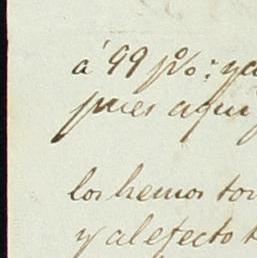 á 99 p%: ya
pues aqui
los hemos to
y al efecto